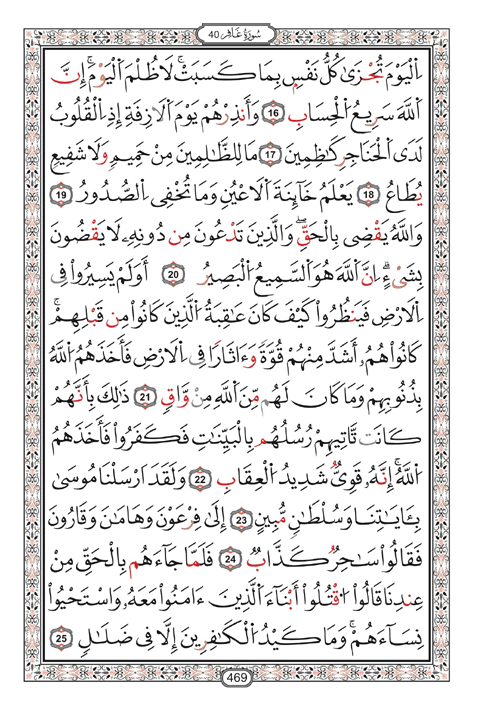 سُورَةُ غَافِر 40
اِ۬لْيَوْمَ تُجْزَىٰ كُلُّ نَفْسِۢ بِمَا كَسَبَتْۖ لَا ظُلْمَ اَ۬لْيَوْمَۖ إِنَّ
اَ۬للَّهَ سَرِيعُ اُ۬لْحِسَابِ 16 وَأَنذِرْهُمْ يَوْمَ اَ۬لَازِفَةِ إِذِ اِ۬لْقُلُوبُ
لَدَى اَ۬لْحَنَاجِرِ كَٰظِمِينَ 17 مَا لِلظَّٰلِمِينَ مِنْ حَمِيمٍ وَلَا شَفِيعٍ
يُطَاعُ 18 يَعْلَمُ خَآئِنَةَ اَ۬لَاعْيُنِ وَمَا تُخْفِى اِ۬لصُّدُورُ 19
وَاللَّهُ يَقْضِى بِالْحَقِّۖ وَالَّذِينَ تَدْعُونَ مِن دُونِهِۦ لَا يَقْضُونَ
بِشَىْءٍۖ اِنَّ اَ۬للَّهَ هُوَ اَ۬لسَّمِيعُ اُ۬لْبَصِيرُ 20 أَوَلَمْ يَسِيرُواْ فِى
اِ۬لَارْضِ فَيَنظُرُواْ كَيْفَ كَانَ عَٰقِبَةُ اُ۬لَّذِينَ كَانُواْ مِن قَبْلِهِمْۖ
كَانُواْ هُمُۥٓ أَشَدَّ مِنْهُمْ قُوَّةً وَءَاثَارًا فِى اِ۬لَارْضِ فَأَخَذَهُمُ اُ۬للَّهُ
بِذُنُوبِهِمْ وَمَا كَانَ لَهُم مِّنَ اَ۬للَّهِ مِنْ وَّاقٍ 21 ذَٰلِكَ بِأَنَّهُمْ
كَانَت تَّاتِيهِمْ رُسُلُهُم بِالْبَيِّنَٰتِ فَكَفَرُواْ فَأَخَذَهُمُ
اُ۬للَّهُۖ إِنَّهُۥ قَوِىٌّ شَدِيدُ اُ۬لْعِقَابِ 22 وَلَقَدَ اَرْسَلْنَا مُوسَىٰ
بِـَٔايَٰتِنَا وَسُلْطَٰنٍ مُّبِينٍ 23 إِلَىٰ فِرْعَوْنَ وَهَامَٰنَ وَقَارُونَ
فَقَالُواْ سَٰحِرٌ كَذَّابٌ 24 فَلَمَّا جَآءَهُم بِالْحَقِّ مِنْ
عِندِنَا قَالُواْ اُ۟قْتُلُواْ أَبْنَآءَ اَ۬لَّذِينَ ءَامَنُواْ مَعَهُۥ وَاسْتَحْيُواْ
نِسَآءَهُمْۖ وَمَا كَيْدُ اُ۬لْكَٰفِرِينَ إِلَّا فِى ضَلَٰلٍ 25
469